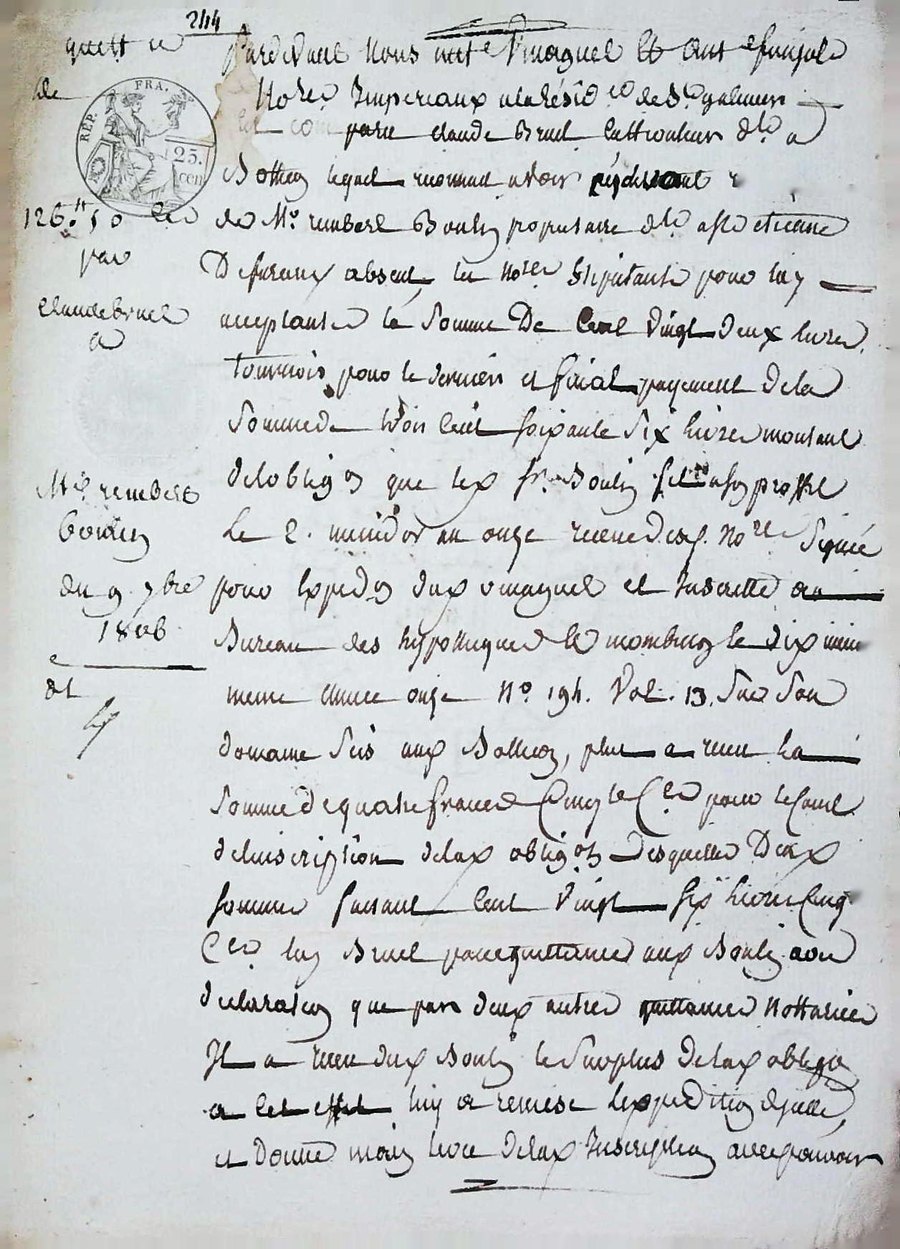 244
quitt.ce
de
REP. FRA.
25.
cen
126.tt 50
par
claude bruel
a
Mr. rembert
boulin
du 9. 7bre
1806.
Pardevant Nous mtre Vmagnel et Ant
No.res Imperiaux a la Résid.ce de St. galmier
est comparu claude Bruel cultivateur
lequel reconnait avoir
de Mr. rembert Boulin propriétaire
De furand absent, les no.res stipulants pour luy
acceptants la Somme De Cent vingt deux livres
tournois pour le dernier et final payement de la
Somme de trois Cent soixante Six livres montant
de l'oblig.on que lex Sr. Boulin
Le 2. onze recue no.re Signée
pour expedon dux Vmagnel et Inscritte au
Bureau des hypotteques de Monbrison le dix
meme année onze No. 194. Vol. 13. Sur Son
domaine Sis aux, plus a recu la
Somme de quatre francs Cinq.te C.es pour le Cout
de l'inscription delax oblig.on Desquelles Deux
sommes faisant Cent Vingt Six livres Cinq.te
C.es luy Bruel passe quittance aux Boulin avec
declaration que par deux autres quittances Nottariées
Il a recu dux Boulin le Surplus delax oblig.on
a cet effet luy a remise l'expedition d'ycelle,
et Donne main levée delax Inscription avec pouvoir